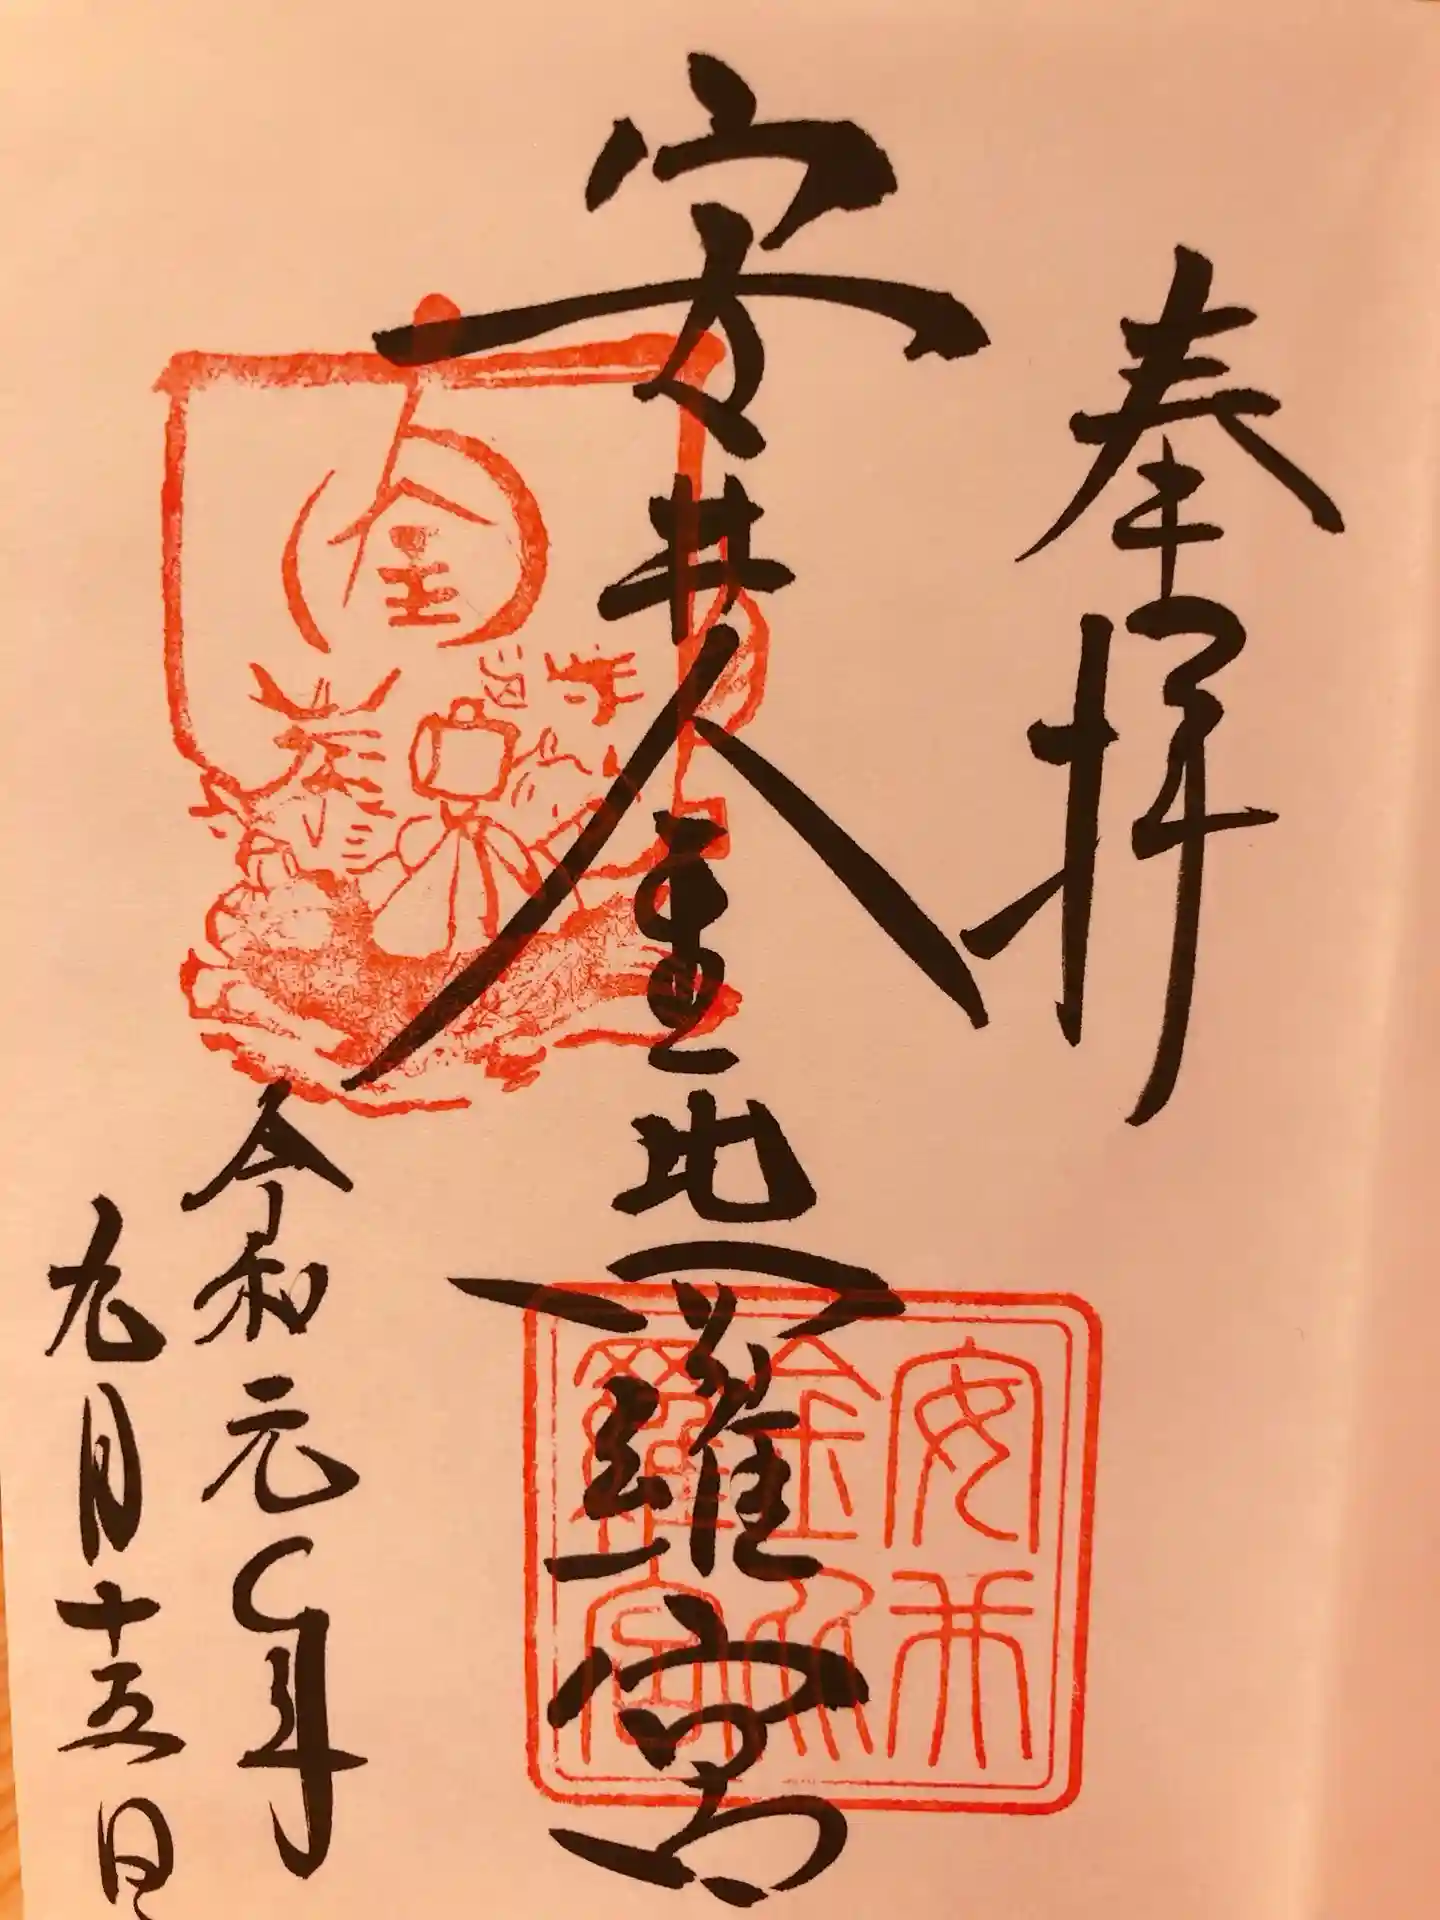 奉拝
安井金比羅宮
令和元年
九月十五日
金
安井
金比
羅宮